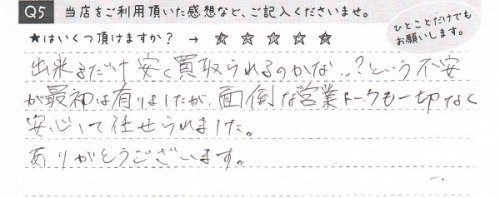 Q5 当店をご利用頂いた感想など、ご記入くださいませ。
★はいくつ頂けますか？ → ☆☆☆☆☆
ひとことだけでも
お願いします。
出来るだけ安く買取られるのかな..？という不安
が最初は有りましたが、面倒な営業トークも一切なく
安心して任せられました。
ありがとうございます。